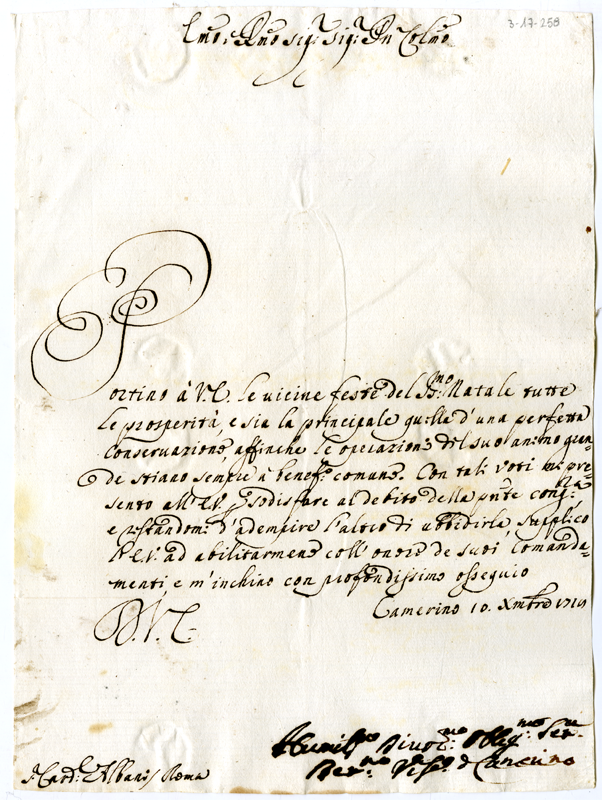 3-17-258
Emo: e Rmo Sig.r Sig.r Pn Colmo
Portino à V.E. le vicine feste del Ss.mo Natale tutte
le prosperità, e sia la principale quella d'una perfetta
conservazione, affinche le operazioni del suo animo gran-
de stiano sempre à benef.o comune. Con tali voti mi pre-
sento all'E.V. p sodisfare al debito della pnte cong.ra
e restandomi d'adempire l'altro di ubbidirla, supplico
l'E.V. ad abilitarmene coll'onore de suoi comanda-
menti, e m'inchino con profondissimo ossequio
D.V.E.
Camerino 10. Xmbre 1719
Humiliss.mo Divot.mo Obblig.mo Ser.re
Ber.no Vesc.o di Camerino
S.r Card.l Albani Roma